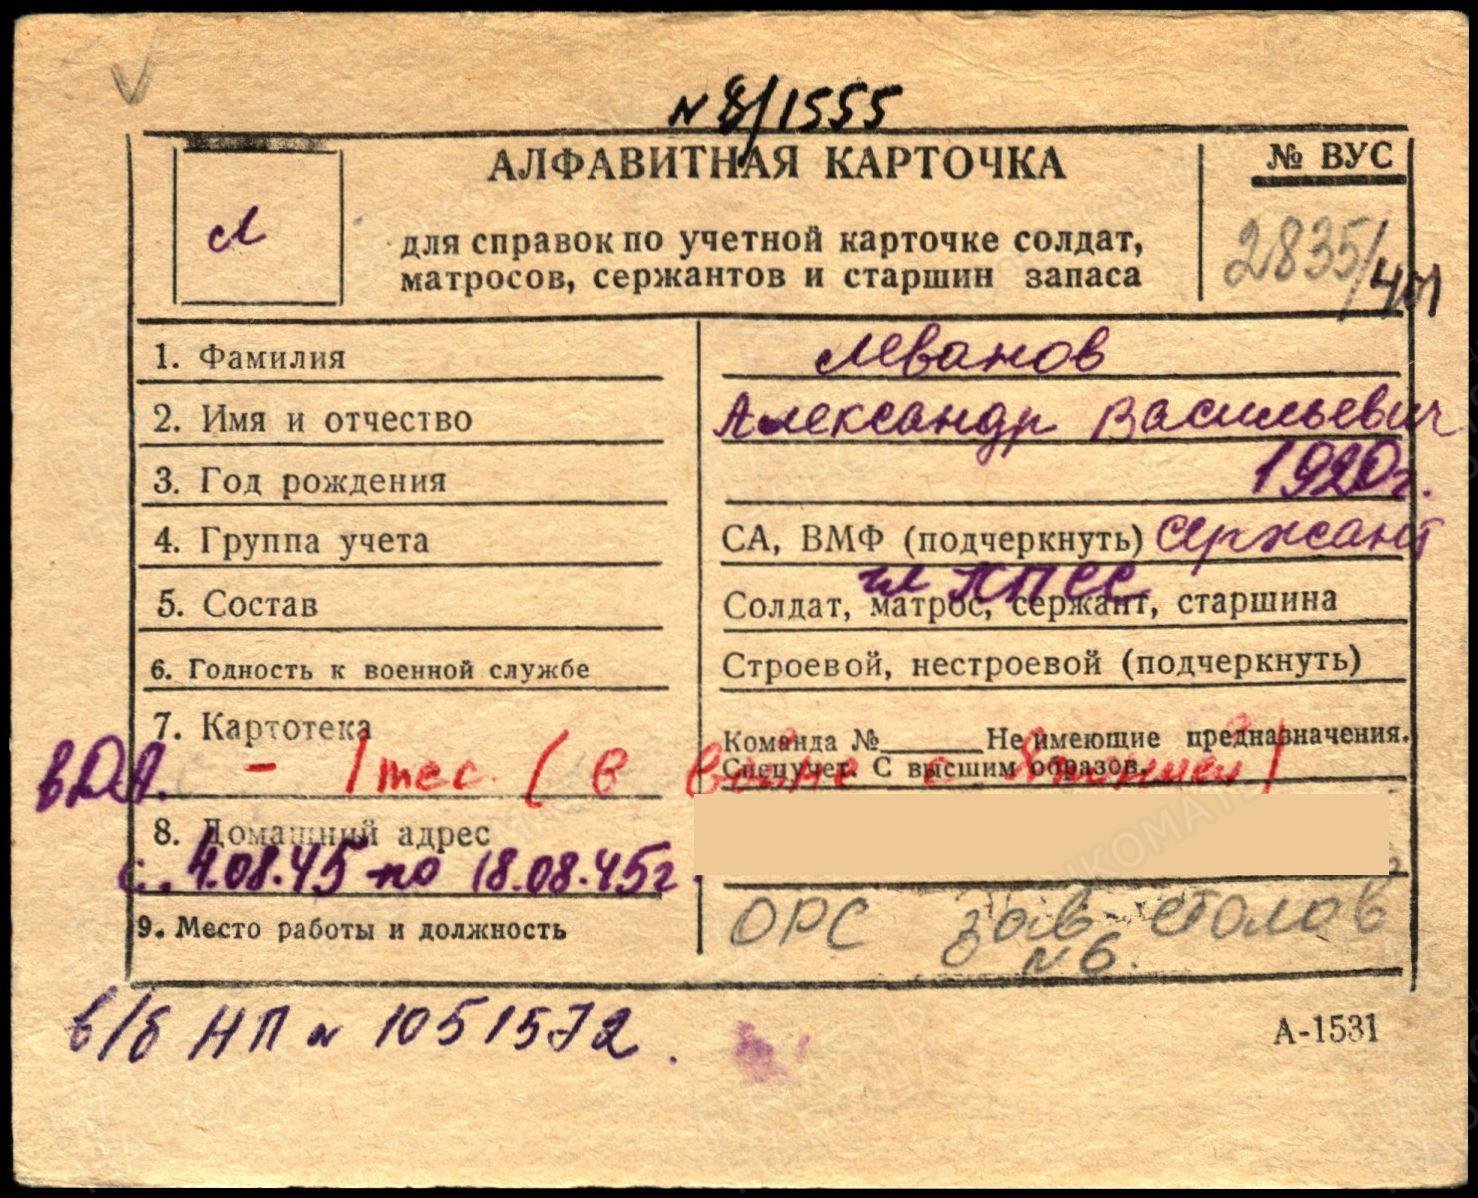 N 8/1555
АЛФАВИТНАЯ КАРТОЧКА
№ ВУС
Л
для справок по учетной карточке солдат,
матросов, сержантов и старшин запаса
2835/401
1. Фамилия Леванов
2. Имя и отчество Александр Васильевич
3. Год рождения 1920г.
4. Группа учета СА, ВМФ (подчеркнуть) сержант
чл КПСС
5. Состав Солдат, матрос, сержант, старшина
6. Годность к военной службе Строевой, нестроевой (подчеркнуть)
7. Картотека Команда №______ Не имеющие предназначения.
Спецучет. С высшим образов.
в Д.А. - 1 мес. (в войне с Японией)
8. Домашний адрес
с 4.08.45 по 18.08.45г.
9. Место работы и должность ОРС зав. столов
N 6.
в/б НП N 1051572.
А-1531